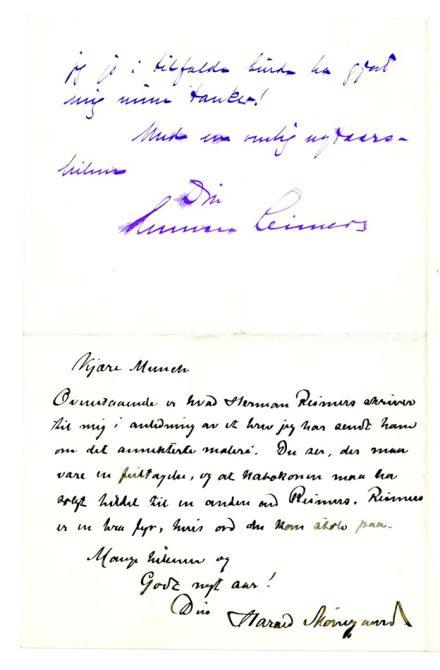 jeg jo i tilfælde burde ha gjort
mig mine tanker!
Med en venlig nytaars-
hilsen
Din
Herman Reimers
Kjære Munch
Ovenstaaende er hvad Herman Reimers skriver
til mig i anledning av et brev jeg har sendt ham
om det annekterte maleri. Du ser, der maa
være en feiltagelse, og at
solgt billedet til en anden end Reimers. Reimers
er en bra fyr, hvis ord du kan stole paa.
Mange hilsener og
Godt nytt aar!
Din Harald Nørregaard